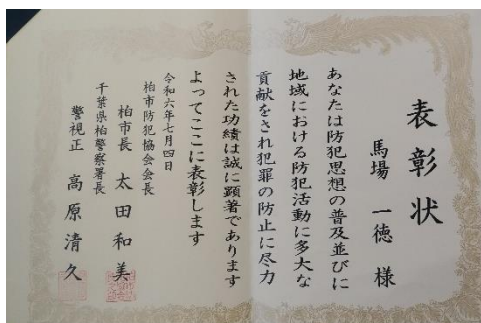 表彰状
馬場 一徳 様
あなたは防犯思想の普及並びに
地域における防犯活動に多大な
貢献をされ犯罪の防止に尽力
された功績は誠に顕著であります
よってここに表彰します
令和六年七月四日
柏市防犯協会会長
柏市長 太田和美
千葉県柏警察署長
警視正 高原清久